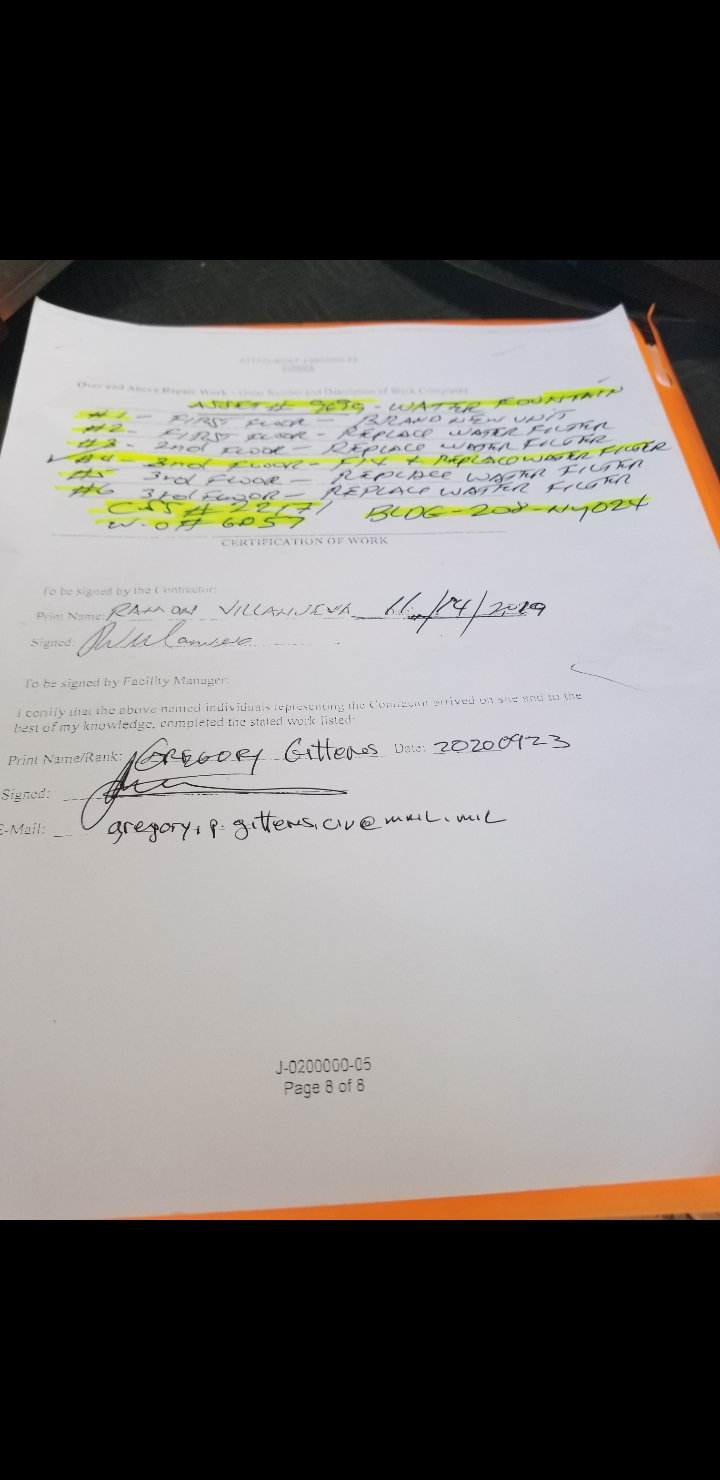 Over and Above Repair Work - Order Number and Description of Work Completed
ASSET # 9695 - WATER FOUNTAIN
#1 - FIRST FLOOR - BRAND NEW UNIT
#2 - FIRST FLOOR - REPLACE WATER FILTER
#3 - 2nd FLOOR - REPLACE WATER FILTER
#4 - 2nd FLOOR - FIX + REPLACE WATER FILTER
#5 - 3rd FLOOR - REPLACE WATER FILTER
#6 3rd FLOOR - REPLACE WATER FILTER
# 22171 BLDG-208-NY024
W.O# 6857
CERTIFICATION OF WORK
To be signed by the Contractor:
Print Name: RAMON VILLANUEVA 11/14/2019
Signed:
To be signed by Facility Manager:
I certify that the above named individuals representing the Contractor arrived on site and to the
best of my knowledge, completed the stated work listed:
Print Name/Rank: GREGORY Gittens Date: 20200923
Signed:
E-Mail: gregory.p.gittens.civ@mail.mil
J-0200000-05
Page 8 of 8